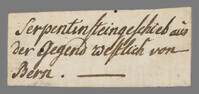 Serpentinsteingeschieb aus
der Gegend westlich von
Bern.